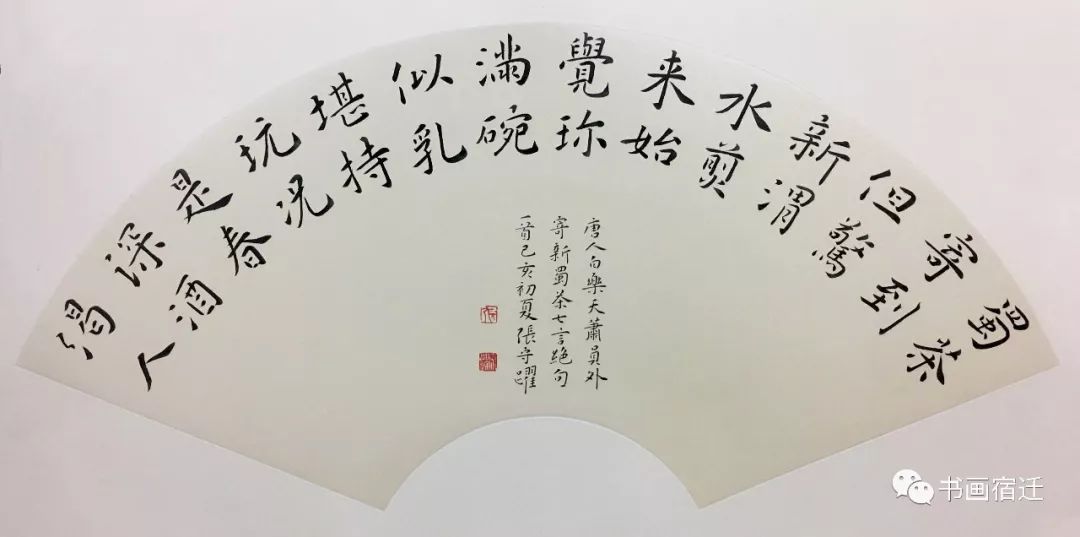 蜀茶
寄到
但驚
新渭
水煎
来始
覺珍
滿碗
似乳
堪持
玩况
是春
深酒
渴人
唐人白樂天蕭員外
寄新蜀茶七言絶句
一首己亥初夏張守躍
书画宿迁